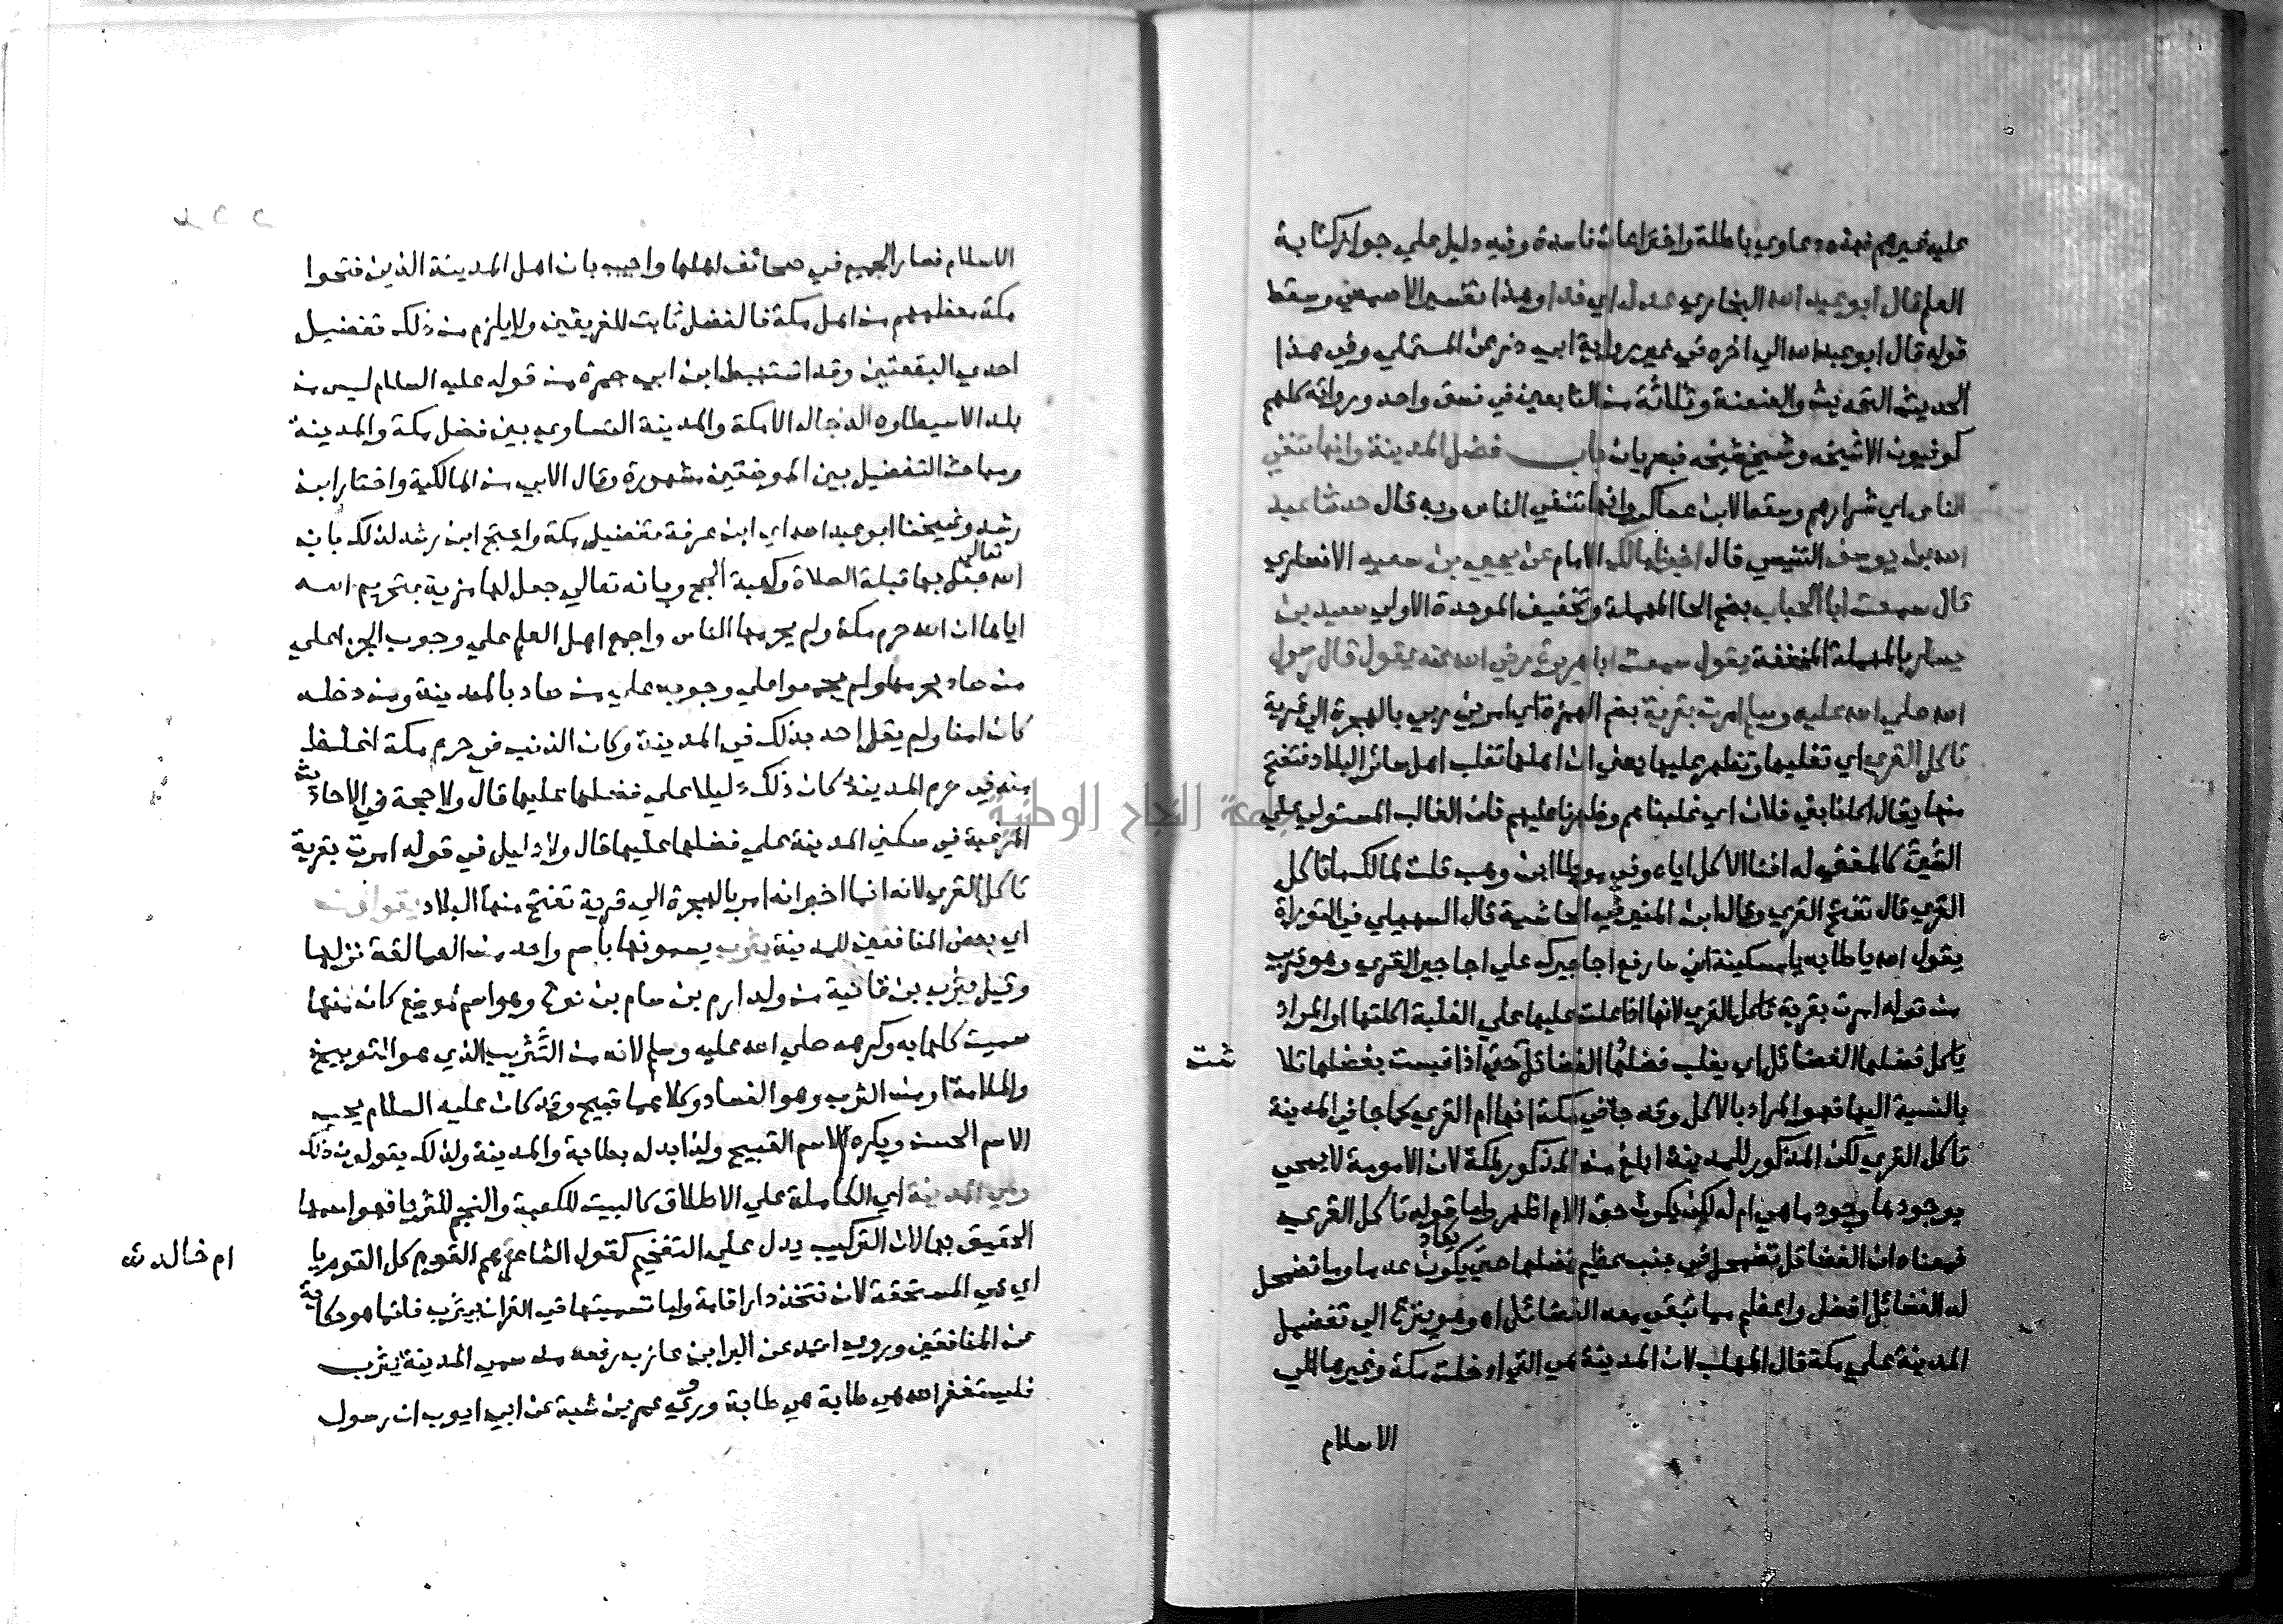 عليه غيرهم فهذه دعاوي باطلة واختراعات فاسدة وفيه دليل علي جواز كتابة
العلم قال ابو عبد الله البخاري عدل اي فدا وهذا تفسير الاصمعي وسقط
قوله قال ابو عبد الله الي اخره في غير رواية ابي ذر عن المستملي وفي هذا
الحديث التحديث والعنعنة وثلاثة من التابعين في نسق واحد ورواته كلهم
كوفيون الا شيخه وشيخ شيخه فبصريان باب فضل المدينة وانها تنفي
الناس اي شرارهم وسقط لابن عساكر وانها تنفي الناس وبه قال حدثنا عبد
الله بن يوسف التنيسي قال اخبرنا مالك الامام عن يحيي بن سعيد الانصاري
قال سمعت ابا الحباب بضم الحا المهملة وتخفيف الموحدة الاولي سعيد بن
يسار بالمهملة المخففة يقول سمعت ابا هريرة رضي الله عنه يقول قال رسول
الله صلي الله عليه وسلم امرت بقرية بضم الهمزة اي امرني ربي بالهجرة الي قرية
تاكل القري اي تغلبها وتظهر عليها يعني ان اهلها تغلب اهل سائر البلاد فتفتح
منها يقال اكلنا بني فلان اي غلبناهم وظهرنا عليهم فان الغالب المستولي علي
الشيئ كالمفني له افنا الاكل اياه وفي موطا ابن وهب قلت لمالك ما تاكل
القري قال تفتح القري وقال ابن المنير في الحاشية قال السهيلي في التوراة
يقول الله يا طابه يا مسكينة اني سارفع اجاجيرك علي اجاجير القري وهو قريب
من قوله امرت بقرية تاكل القري لانها اذا علت عليها علي الغلبة اكلتها او المراد
ياكل فضلها الفضائل اي يغلب فضلها الفضائل حتي اذا قيست بفضلها تلا
شت
بالنسبة اليها فهو المراد بالاكل وقد جا في مكة انها ام القري كما جا في المدينة
تاكل القري لكن المذكور للمدينة ابلغ من المذكور لمكة لان الامومة لا يمحي
بوجودها وجود ما هي ام له لكن يكون حق الام اظهر واما قوله تاكل القري
فمعناه ان الفضائل تضمحل في جنب عظيم فضلها حتي يكاد يكون عدما وما تضمحل
له الفضائل افضل واعظم مما تبقي معه الفضائل اه وهو ينزع الي تفضيل
المدينة علي مكة قال المهلب لان المدينة هي التي ادخلت مكة وغيرها الي
الاسلام
الاسلام فصار الجميع في صحائف اهلها واجيب بان اهل المدينة الذين فتحوا
مكة معظمهم من اهل مكة فالفضل ثابت للفريقين ولا يلزم من ذلك تفضيل
احدي البقعتين وقد استنبط ابن ابي جمرة من قوله عليه السلام ليس من
بلد الا سيطاوه الدجال الا مكة والمدينة التساوي بين فضل مكة والمدينة
ومباحث التفضيل بين الموضعين مشهورة وقال الابي من المالكية واختار ابن
رشد وشيخنا ابو عبد الله اي ابن عرفة تفضيل مكة واحتج ابن رشد لذلك بان
الله تعالي جعل بها قبلة الصلاة وكعبة الحج وبانه تعالي جعل لها مزية بتحريم الله
اياها ان الله حرم مكة ولم يحرمها الناس واجمع اهل العلم علي وجوب الجزا علي
من صاد بحرمها ولم يجمعوا علي وجوبه علي من صاد بالمدينة ومن دخله
كان امنا ولم يقل احد بذلك في المدينة وكان الذنب في حرم مكة اغلظ
منه في حرم المدينة كان ذلك دليلا علي فضلها عليها قال ولا حجة في الاحاديث
المرغبة في سكني المدينة علي فضلها عليها قال ولا دليل في قوله امرت بقرية
تاكل القري لانه انما اخبر انه امر بالهجرة الي قرية تفتح منها البلاد يقولون
اي بعض المنافقين للمدينة يثرب يسمونها باسم واحد من العمالقة نزلها
وقيل يثرب بن قانية من ولد ارم بن سام بن نوح وهو اسم لموضع كان منها
سميت كلها به وكرهه صلي الله عليه وسلم لانه من التثريب الذي هو التوبيخ
والملامة او من الثرب وهو الفساد وكلاهما قبيح وقد كان عليه السلام يحب
الاسم الحسن ويكره الاسم القبيح ولذا بدله بطابة والمدينة ولذلك يقولون ذلك
وهي المدينة اي الكاملة علي الاطلاق كالبيت للكعبة والنجم للثريا فهو اسمها
الحقيق بها لان التركيب يدل علي التفخيم كقول الشاعر هم القوم كل القوم يا
ام خالد
اي هي المستحقة لان تتخذ دار اقامة واما تسميتها في القران بيثرب فانما هو حكاية
عن المنافقين وروي احمد عن البرا بن عازب رفعه من سمي المدينة يثرب
فليستغفر الله هي طابة هي طابة وروي عمر بن شبة عن ابي ايوب ان رسول
جامعة النجاح الوطنية